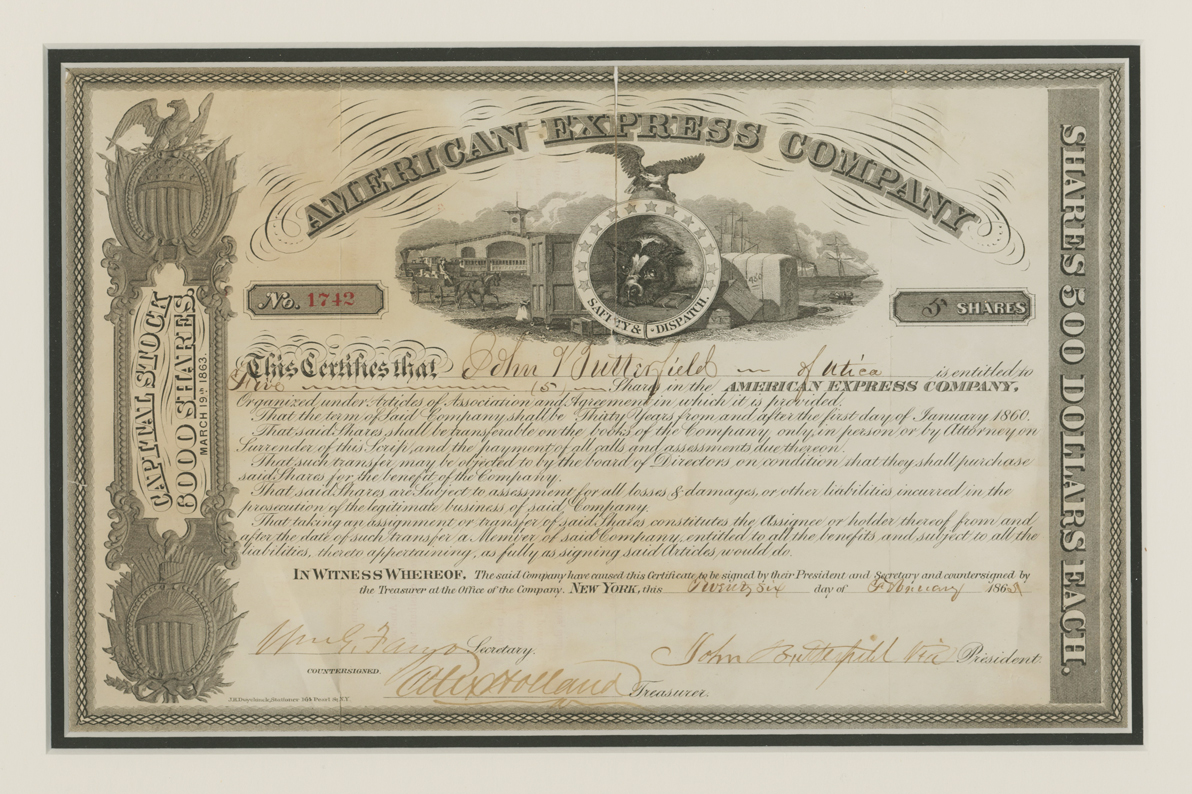 AMERICAN EXPRESS COMPANY
SAFETY & DISPATCH.
No. 1742
5 SHARES
CAPITAL STOCK
8000 SHARES
MARCH 19TH 1863.
SHARES 500 DOLLARS EACH.
This Certifies that John Butterfield of Utica is entitled to
Five (5) Shares in the AMERICAN EXPRESS COMPANY,
Organized under Articles of Association and Agreement in which it is provided;
That the term of said Company shall be Thirty Years from and after the first day of January 1860.
That said Shares shall be transferable on the books of the Company only, in person or by Attorney on
Surrender of this Scrip, and the payment of all calls and assessments due thereon.
That such transfer may be objected to by the board of Directors on condition that they shall purchase
said Shares for the benefit of the Company.
That said Shares are Subject to assessment for all losses & damages, or other liabilities, incurred in the
prosecution of the legitimate business of said Company.
That taking an assignment or transfer of said Shares constitutes the Assignee or holder thereof from and
after the date of such transfer a Member of said Company, entitled to all the benefits and subject to all the
liabilities, thereto appertaining, as fully as signing said Articles would do.
IN WITNESS WHEREOF, The said Company have caused this Certificate to be signed by their President and Secretary and countersigned by
the Treasurer at the Office of the Company. NEW YORK, this Twenty Six day of February 186
Wm G. Fargo Secretary.
John Butterfield Vice President.
COUNTERSIGNED.
Alex Holland Treasurer.
Stationer 168 Pearl St. N.Y.